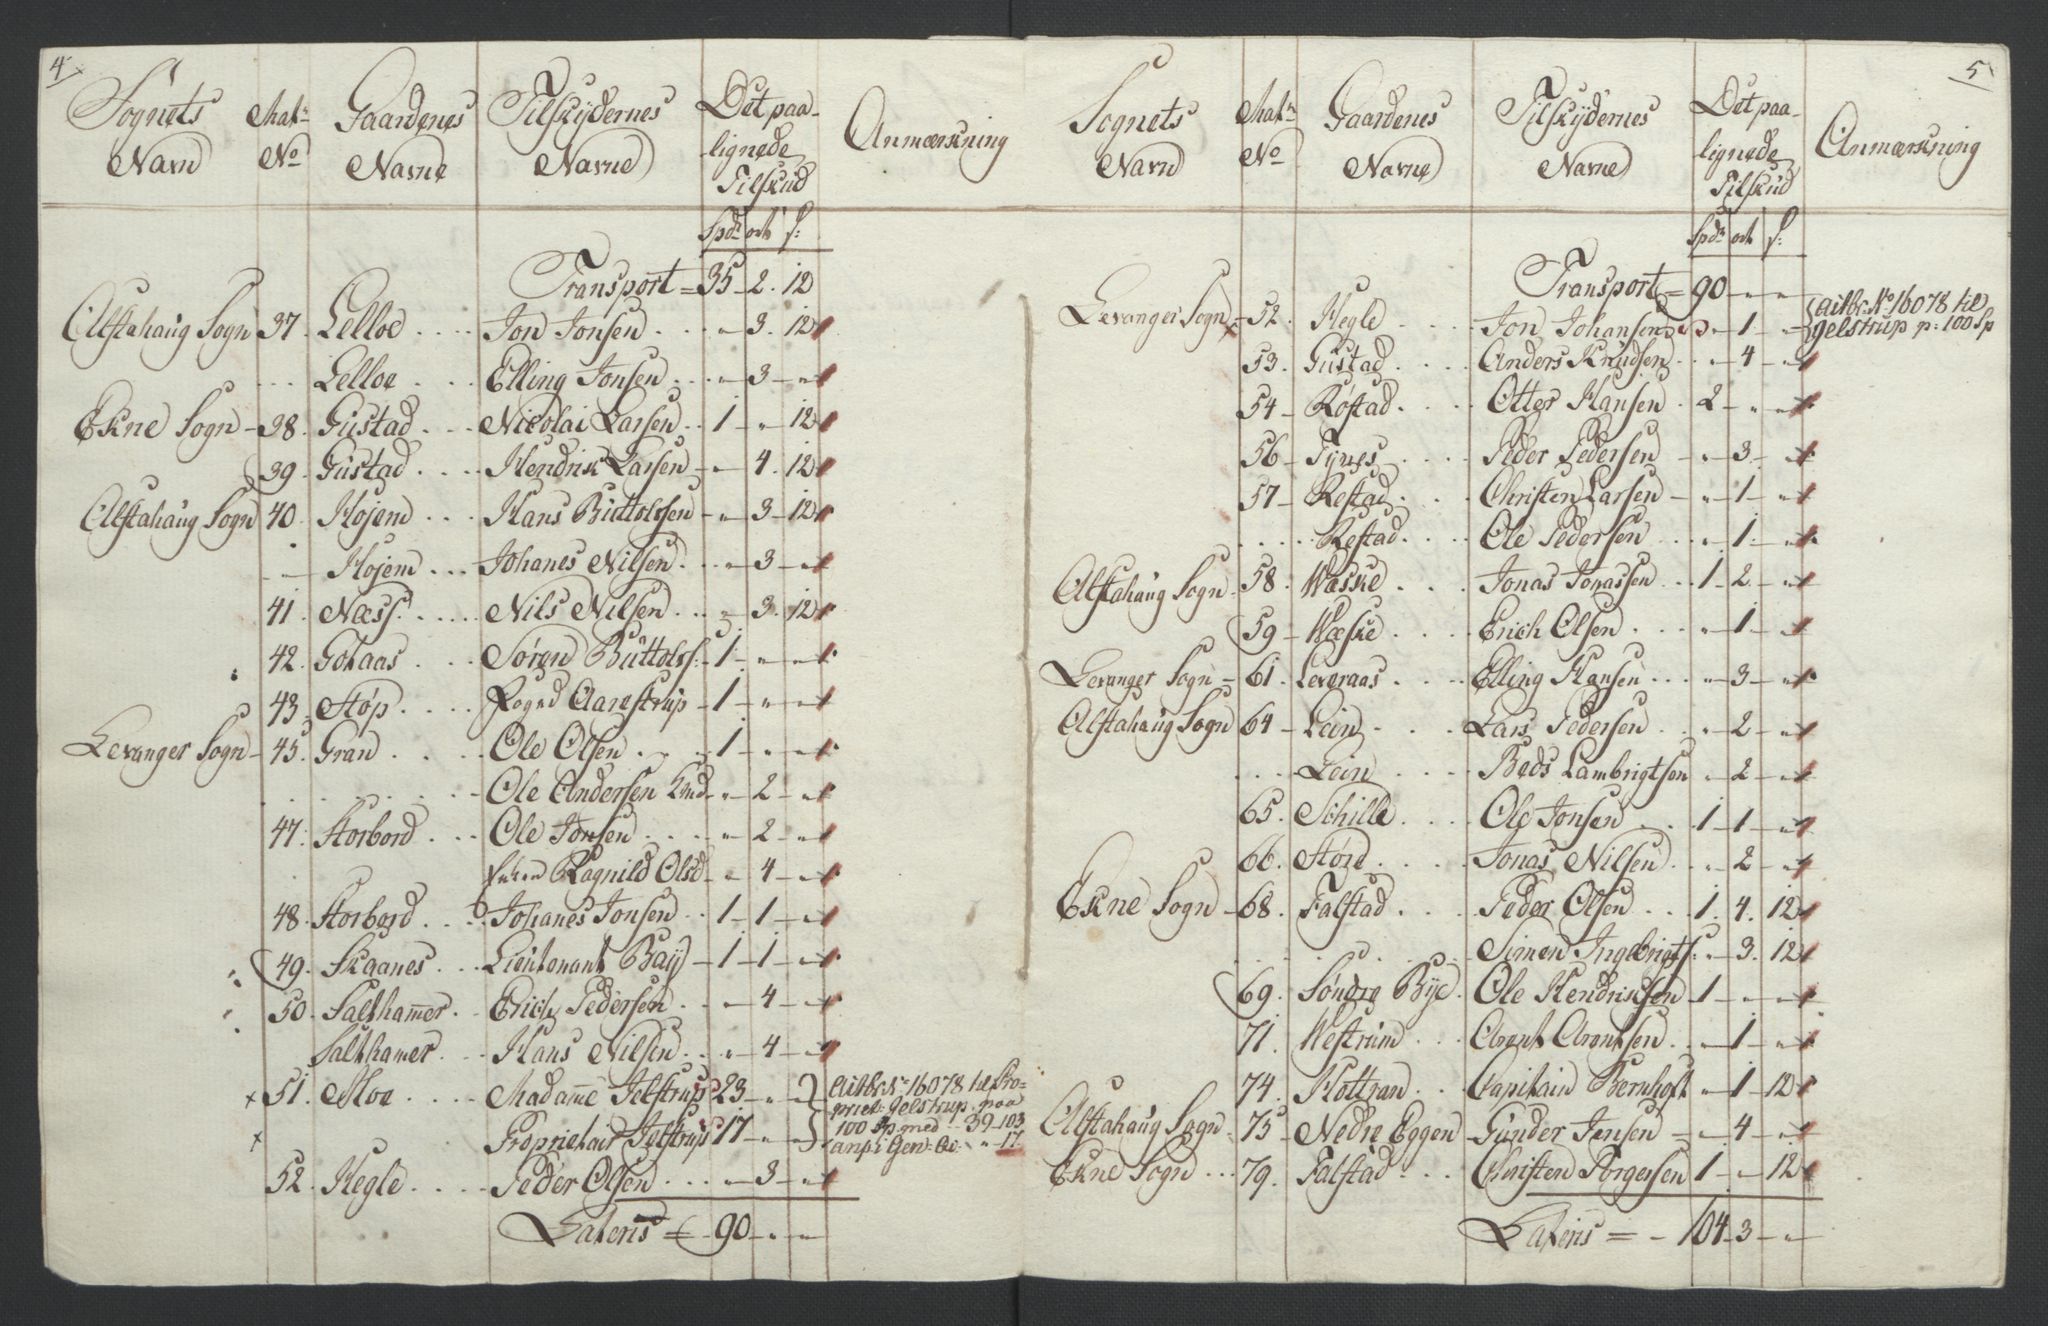 4
Sognets Navn | Matr No | Gaardenes Navne | Tilskydernes Navne | Det paalignede Tilskud | Anmærkning
Spdr ort s:
Transport = 35 - 2 - 12
Alstahaug Sogn 37. Lelloe Jon Jonsen " - 3 - 12
Lelloe Elling Jonsen " - 3 - "
Ekne Sogn - 38. Gustad Nicolai Larsen 1 - " - 12
39. Gustad Hendrik Larsen - " - 4 - 12
Alstahaug Sogn 40. Hojem Hans Buttolssen - " - 3 - 12
Hojem Johanes Nilsen " - 3 - "
41. Næss Nils Nilsen " - 3 - 12
42. Gotaas Søren Buttolss: - 1 - " - "
43. Støp Fogud Aarestrup - 1 - " - "
Levanger Sogn - 45. Gran Ole Olsen 1 - " - "
Ole Andersen - " - 2 - "
47. Storbord Ole Jonsen " - 2 - "
Enken Ragnild Olsd - " - 4 - "
48. Storbord Johanes Jonsen 1 - 1 - "
49. Skaanes Lieutenant Bay - 1 - 1 - "
50. Salthammer Erich Pedersen " - 4 - "
Salthamer Hans Nilsen " - 4 - "
x 51. Moe Madamme Jelstrup 23 - " - "
x Proprietair Jelstrup 17 - " - "
Qitbr No 16078 til Pro-
priet: Gelstrup paa
100 Sp med 39-103
anp: i Gen: Qv: " - 17
52. Hegle Peder Olsen " - 3 - "
Lateris = 90 - " - "
5
Sognets Navn | Matr No | Gaardenes Navne | Tilskydernes Navne | Det paalignede Tilskud | Anmærkning
Spdr ort s:
Transport = 90 - " - "
Levanger Sogn x 52. Hegle Jon Johansen " - 1 - "
Qitbr. No 16078 til
Gelstrup p: 100 Sp
53. Gustad Anders Knudsen " - 4 - "
54 - Røstad Otter Hansen 2 - " - "
56 - Tynes Peder Pedersen - " - 3 - "
57 - Restad Christen Larsen - " - 1 - "
Restad Ole Pedersen " - 1 - "
Alstahaug Sogn - 58. Wæske Jonas Jonassen 1 - 2 - "
59 - Wæske Erich Olsen " - 1 - "
Levanger Sogn - 61. Leveraas Elling Hansen " - 3 - "
Alstahaug Sogn 64 - Lein Lars Pedersen " - 2 - "
Lein Beds Lambrigtsen " - 2 - "
65. Schille Ole Jonsen 1 - 1 - "
66. Støre Jonas Nilsen " - 2 - "
Ekne Sogn - 68. Falstad Peder Olsen 1 - 4 - 12
Simen Ingebrigts: " - 3 - 12
69. Søndre Bye Ole Hendriksen 1 - " - "
71. Westrum Arent Arentsen " - 1 - "
74. Hottran Capitain Bernhoft " - 1 - 12
Alstahaug Sogn 75 - Nedre Eggen Gunder Jensen - " - 4 - "
Ekne Sogn 79. Falstad Christen Torgersen 1 - " - 12
Lateris = - 104 - 3 - "